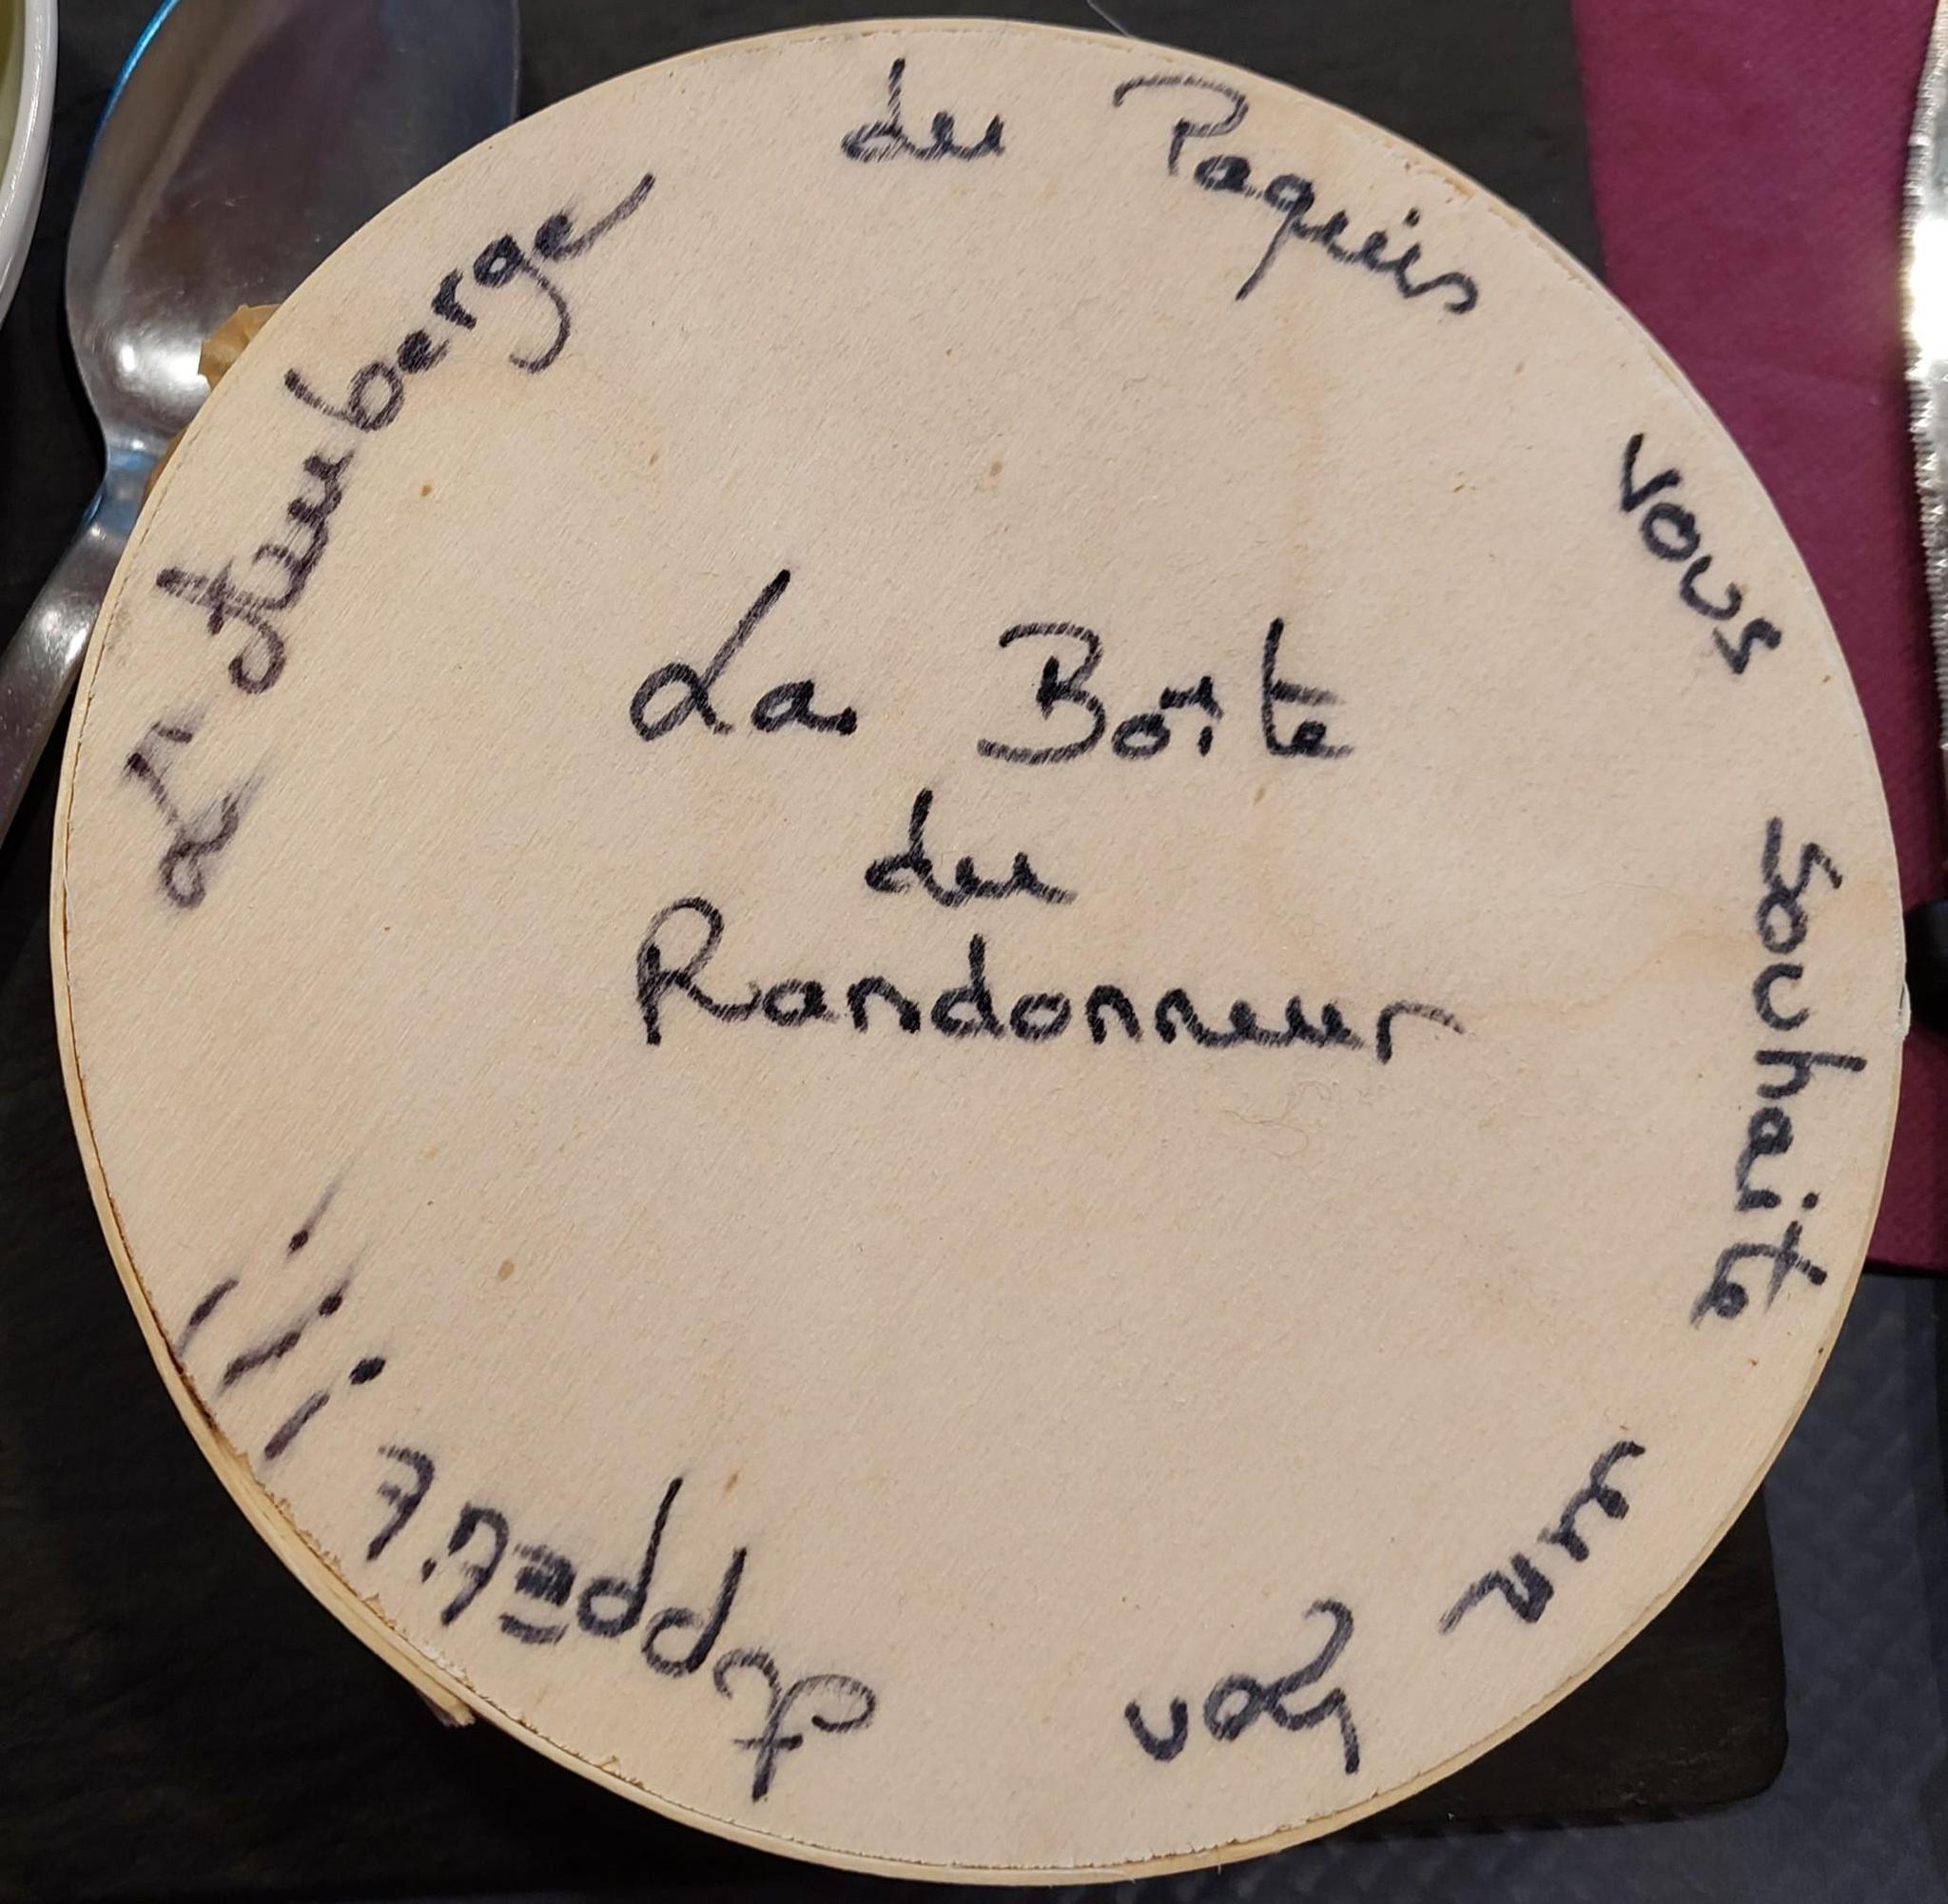 L'Auberge du Paquis vous souhaite un bon Appétit !!!
La Boîte
du
Randonneur